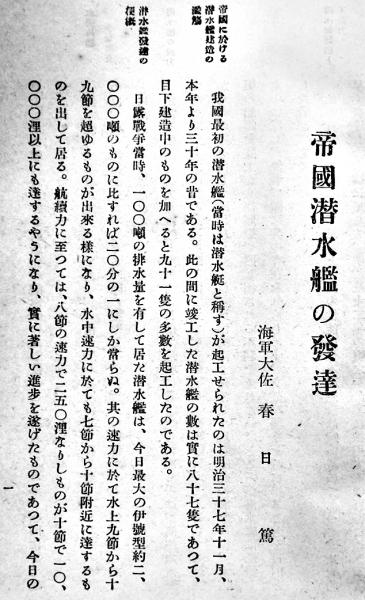 帝國潜水艦の發達
海軍大佐 春日篤
帝國に於ける
潜水艦建造の
濫觴
我國最初の潜水艦(當時は潜水艇と稱す)が起工せられたのは明治三十七年十一月、
本年より三十年の昔である。此の間に竣工した潜水艦の數は實に八十七隻であつて、
目下建造中のものを加へると九十一隻の多數を起工したのである。
潜水艦發達の
梗概
日露戰爭當時、一〇〇噸の排水量を有して居た潜水艦は、今日最大の伊號型約二、
〇〇〇噸のものに比すれば二〇分の一にしか當らぬ。其の速力に於て水上九節から十
九節を超ゆるものが出來る樣になり、水中速力に於ても七節から十節附近に達するも
のを出して居る。航續力に至つては、八節の速力で二五〇浬なりしものが十節で一〇、
〇〇〇浬以上にも達するやうになり、實に著しい進歩を遂げたものであつて、今日の
一